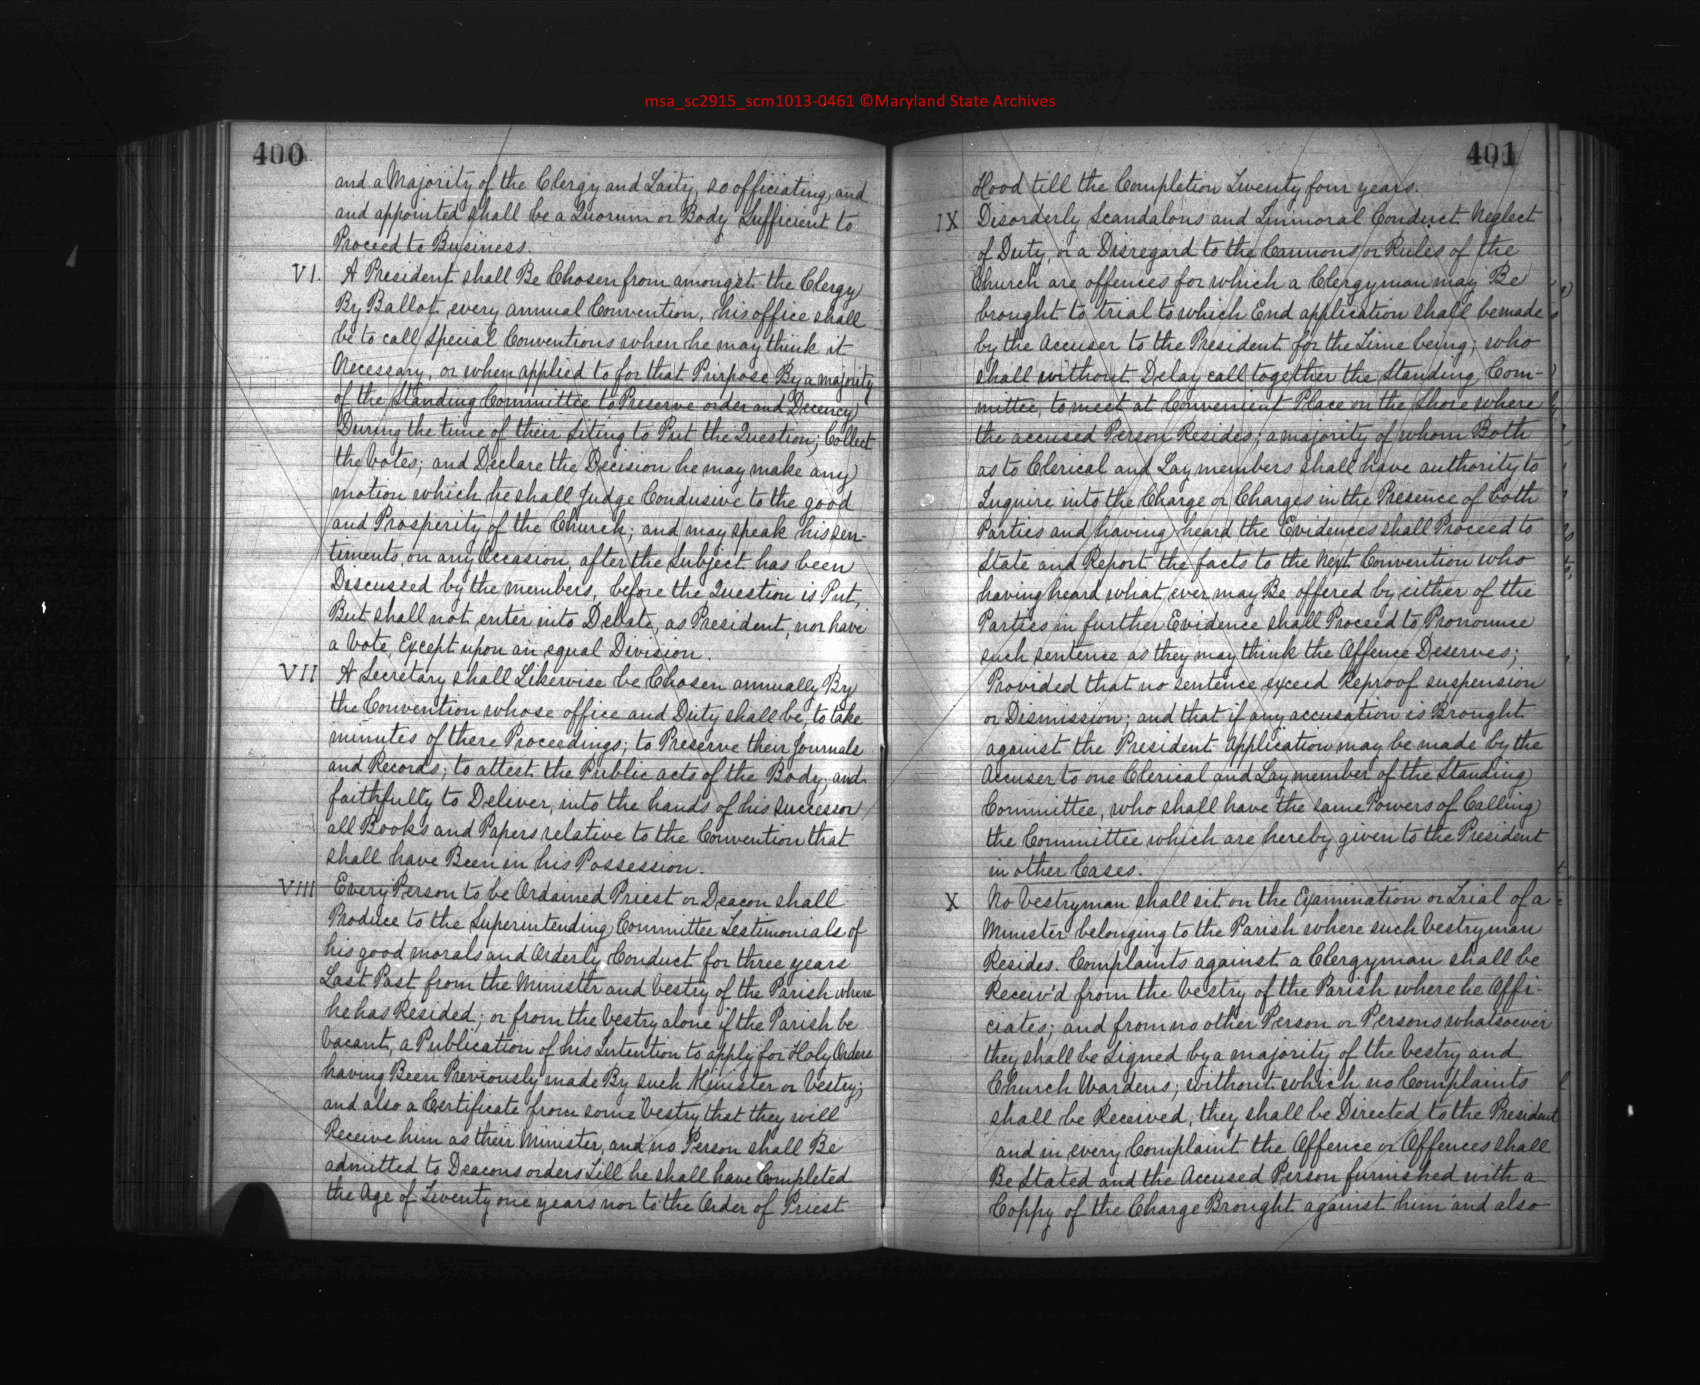 msa_sc2915_scm1013-0461 ©Maryland State Archives
400
and a Majority of the Clergy and Laity, so officiating, and
and appointed shall be a Quorum or Body Sufficient to
Proceed to Business.
VI. A President shall Be Chosen from amongst the Clergy
By Ballot every annual Convention, his office shall
be to call Special Conventions when he may think it
Necessary, or when applied to for that Purpose By a majority
of the Standing Committee to Preserve order and Decency
During the time of their Siting to Put the Question; Collect
the Votes; and Declare the Decision he may make any
motion which he shall Judge Condusive to the good
and Prosperity of the Church; and may speak his sen-
timents, on any Occasion, after the Subject has been
Discussed by the members, before the Question is Put,
But shall not enter into Debate, as President, nor have
a Vote Except upon an equal Division.
VII A Secretary shall Likewise be Chosen annually By
the Convention whose office and Duty shall be, to take
minutes of there Proceedings; to Preserve their Journals
and Records; to attest the Public acts of the Body; and
faithfully to Deliver, into the hands of his successor
all Books and Papers relative to the Convention that
shall have Been in his Possession.
VIII Every Person to be Ordained Priest or Deacon shall
Produce to the Superintending Committee Testimonials of
his good morals and Orderly Conduct for three years
Last Past from the Minister and Vestry of the Parish where
he has Resided; or from the Vestry alone if the Parish be
Vacant, a Publication of his Intention to apply for Holy Orders
having Been Previously made By such Minister or Vestry;
and also a Certificate from some Vestry that they will
Receive him as their Minister, and no Person shall Be
admitted to Deacons orders till he shall have Completed
the Age of Twenty one years nor to the Order of Priest
401
Hood till the Completion Twenty four years.
IX Disorderly Scandalous and Immoral Conduct Neglect
of Duty or a Disregard to the Cannons or Rules of the
Church are offences for which a Clergyman may Be
brought to trial to which End application shall be made
by the Accuser to the President for the Time being; who
shall without Delay call together the Standing Com-
mittee, to meet at Convenient Place on the Shore where
the accused Person Resides; a majority of whom Both
as to Clerical and Lay members shall have authority to
Inquire into the Charge or Charges in the Presence of both
Parties and having heard the Evidences shall Proceed to
State and Report the facts to the Next Convention who
having heard what ever may Be offered by either of the
Parties in further Evidence shall Proceed to Pronounce
such sentence as they may think the Offence Deserves;
Provided that no sentence exceed Reproof suspension
or Dismission; and that if any accusation is Brought
against the President Application may be made by the
Accuser to one Clerical and Lay member of the Standing
Committee, who shall have the same Powers of Calling
the Committee which are hereby given to the President
in other Cases.
X No Vestryman shall sit on the Examination or Trial of a
Minister belonging to the Parish where such Vestryman
Resides. Complaints against a Clergyman shall be
Receiv'd from the Vestry of the Parish where he Offi-
ciates; and from no other Person or Persons whatsoever
they shall be Signed by a majority of the Vestry and
Church Wardens; without which no Complaints
shall be Received, they shall be Directed to the President
and in every Complaint the Offence or Offences shall
Be Stated and the Accused Person furnished with a
Coppy of the Charge Brought against him and also